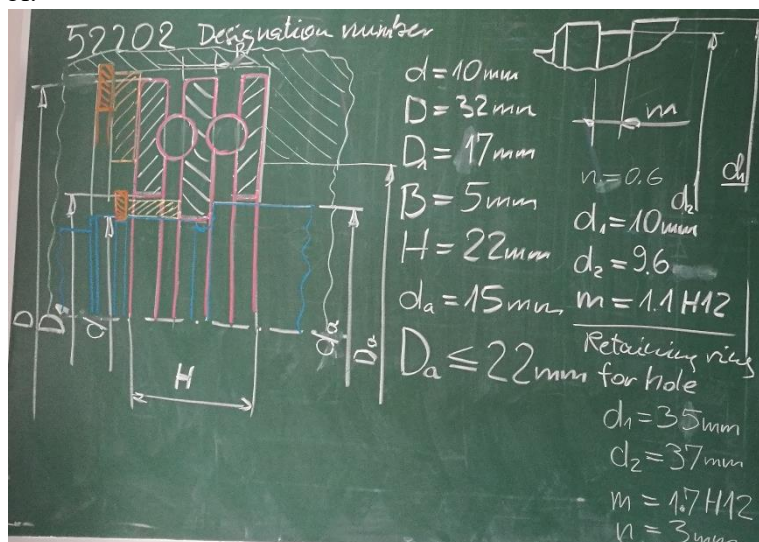 52202 Designation number
d = 10mm
D = 32mm
D₁ = 17mm
B = 5mm
H = 22mm
da = 15mm
Da ≤ 22mm
m
d₁
d₂
n = 0.6
d₁ = 10mm
d₂ = 9.6
m = 1.1 H12
Retaining ring
for hole
d₁ = 35mm
d₂ = 37mm
m = 1.7 H12
n = 3mm
D
D
d
H
da
Da